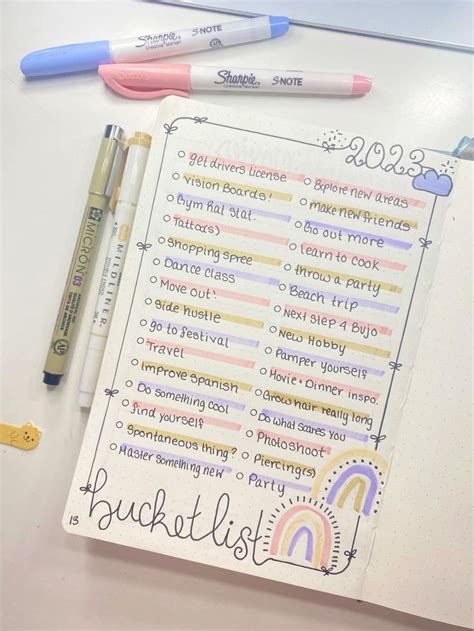 Sharpie S-NOTE
Creative Marker
Sharpie S-NOTE
Creative Marker
MICRON 03
MILDLINER
2023
get drivers license
Vision Boards!
Gym Rat Stat.
Tattoo(s)
Shopping spree
Dance class
Move out!
Side hustle
go to festival
Travel
Improve Spanish
Do something cool
find yourself
Spontaneous thing?
Master something new
Explore new areas
make new friends
Go out more
Learn to cook
throw a party
Beach trip
Next step 4 Bujo
New Hobby
Pamper yourself
Movie + Dinner inspo.
Grow hair really long
Do what scares you
Photoshoot
Piercing(s)
Party
bucket list
13